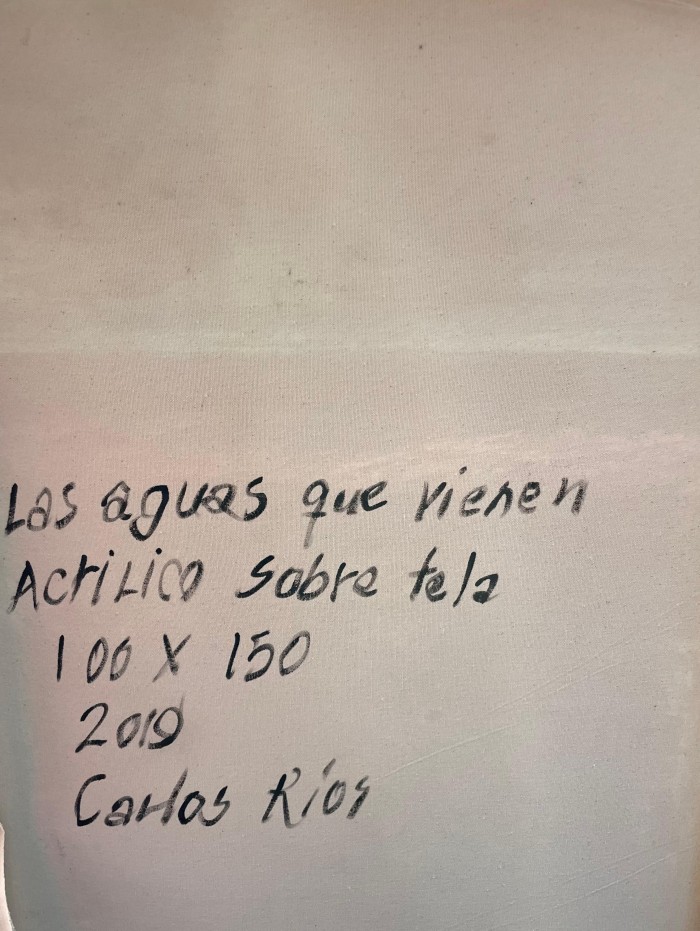 Las aguas que vienen
Acrilico sobre tela
100 X 150
2019
Carlos Ríos